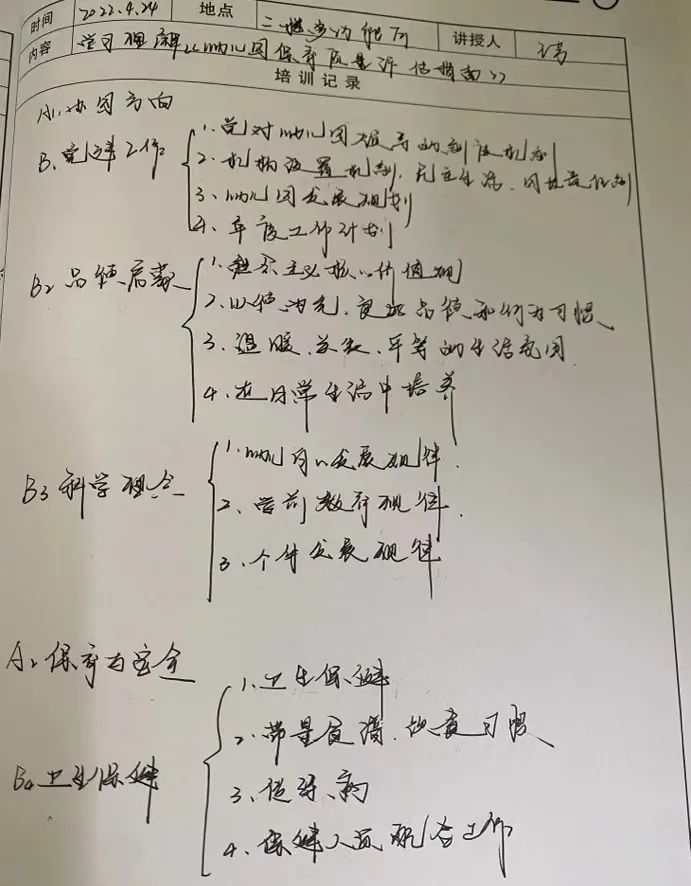 时间 2022.4.24 地点 二楼多功能厅 讲授人
内容 学习理解《幼儿园保育质量评估指南》
培训记录
A1、办园方向
B1 党建工作
1、党对幼儿园领导的制度机制
2、机构设置机制,民主生活、
3、幼儿园发展规划
4、年度工作计划
B2 品德启蒙
1、社会主义核心价值观
2、以德为先,良好品德和行为习惯
3、温暖、关爱、平等的生活氛围
4、在日常生活中培养
B3 科学理念
1、幼儿身心发展规律
2、学前教育规律
3、个体发展规律
A2 保育与安全
B4 卫生保健
1、卫生保健
2、带量食谱、饮食习惯
3、传染病
4、保健人员配合工作